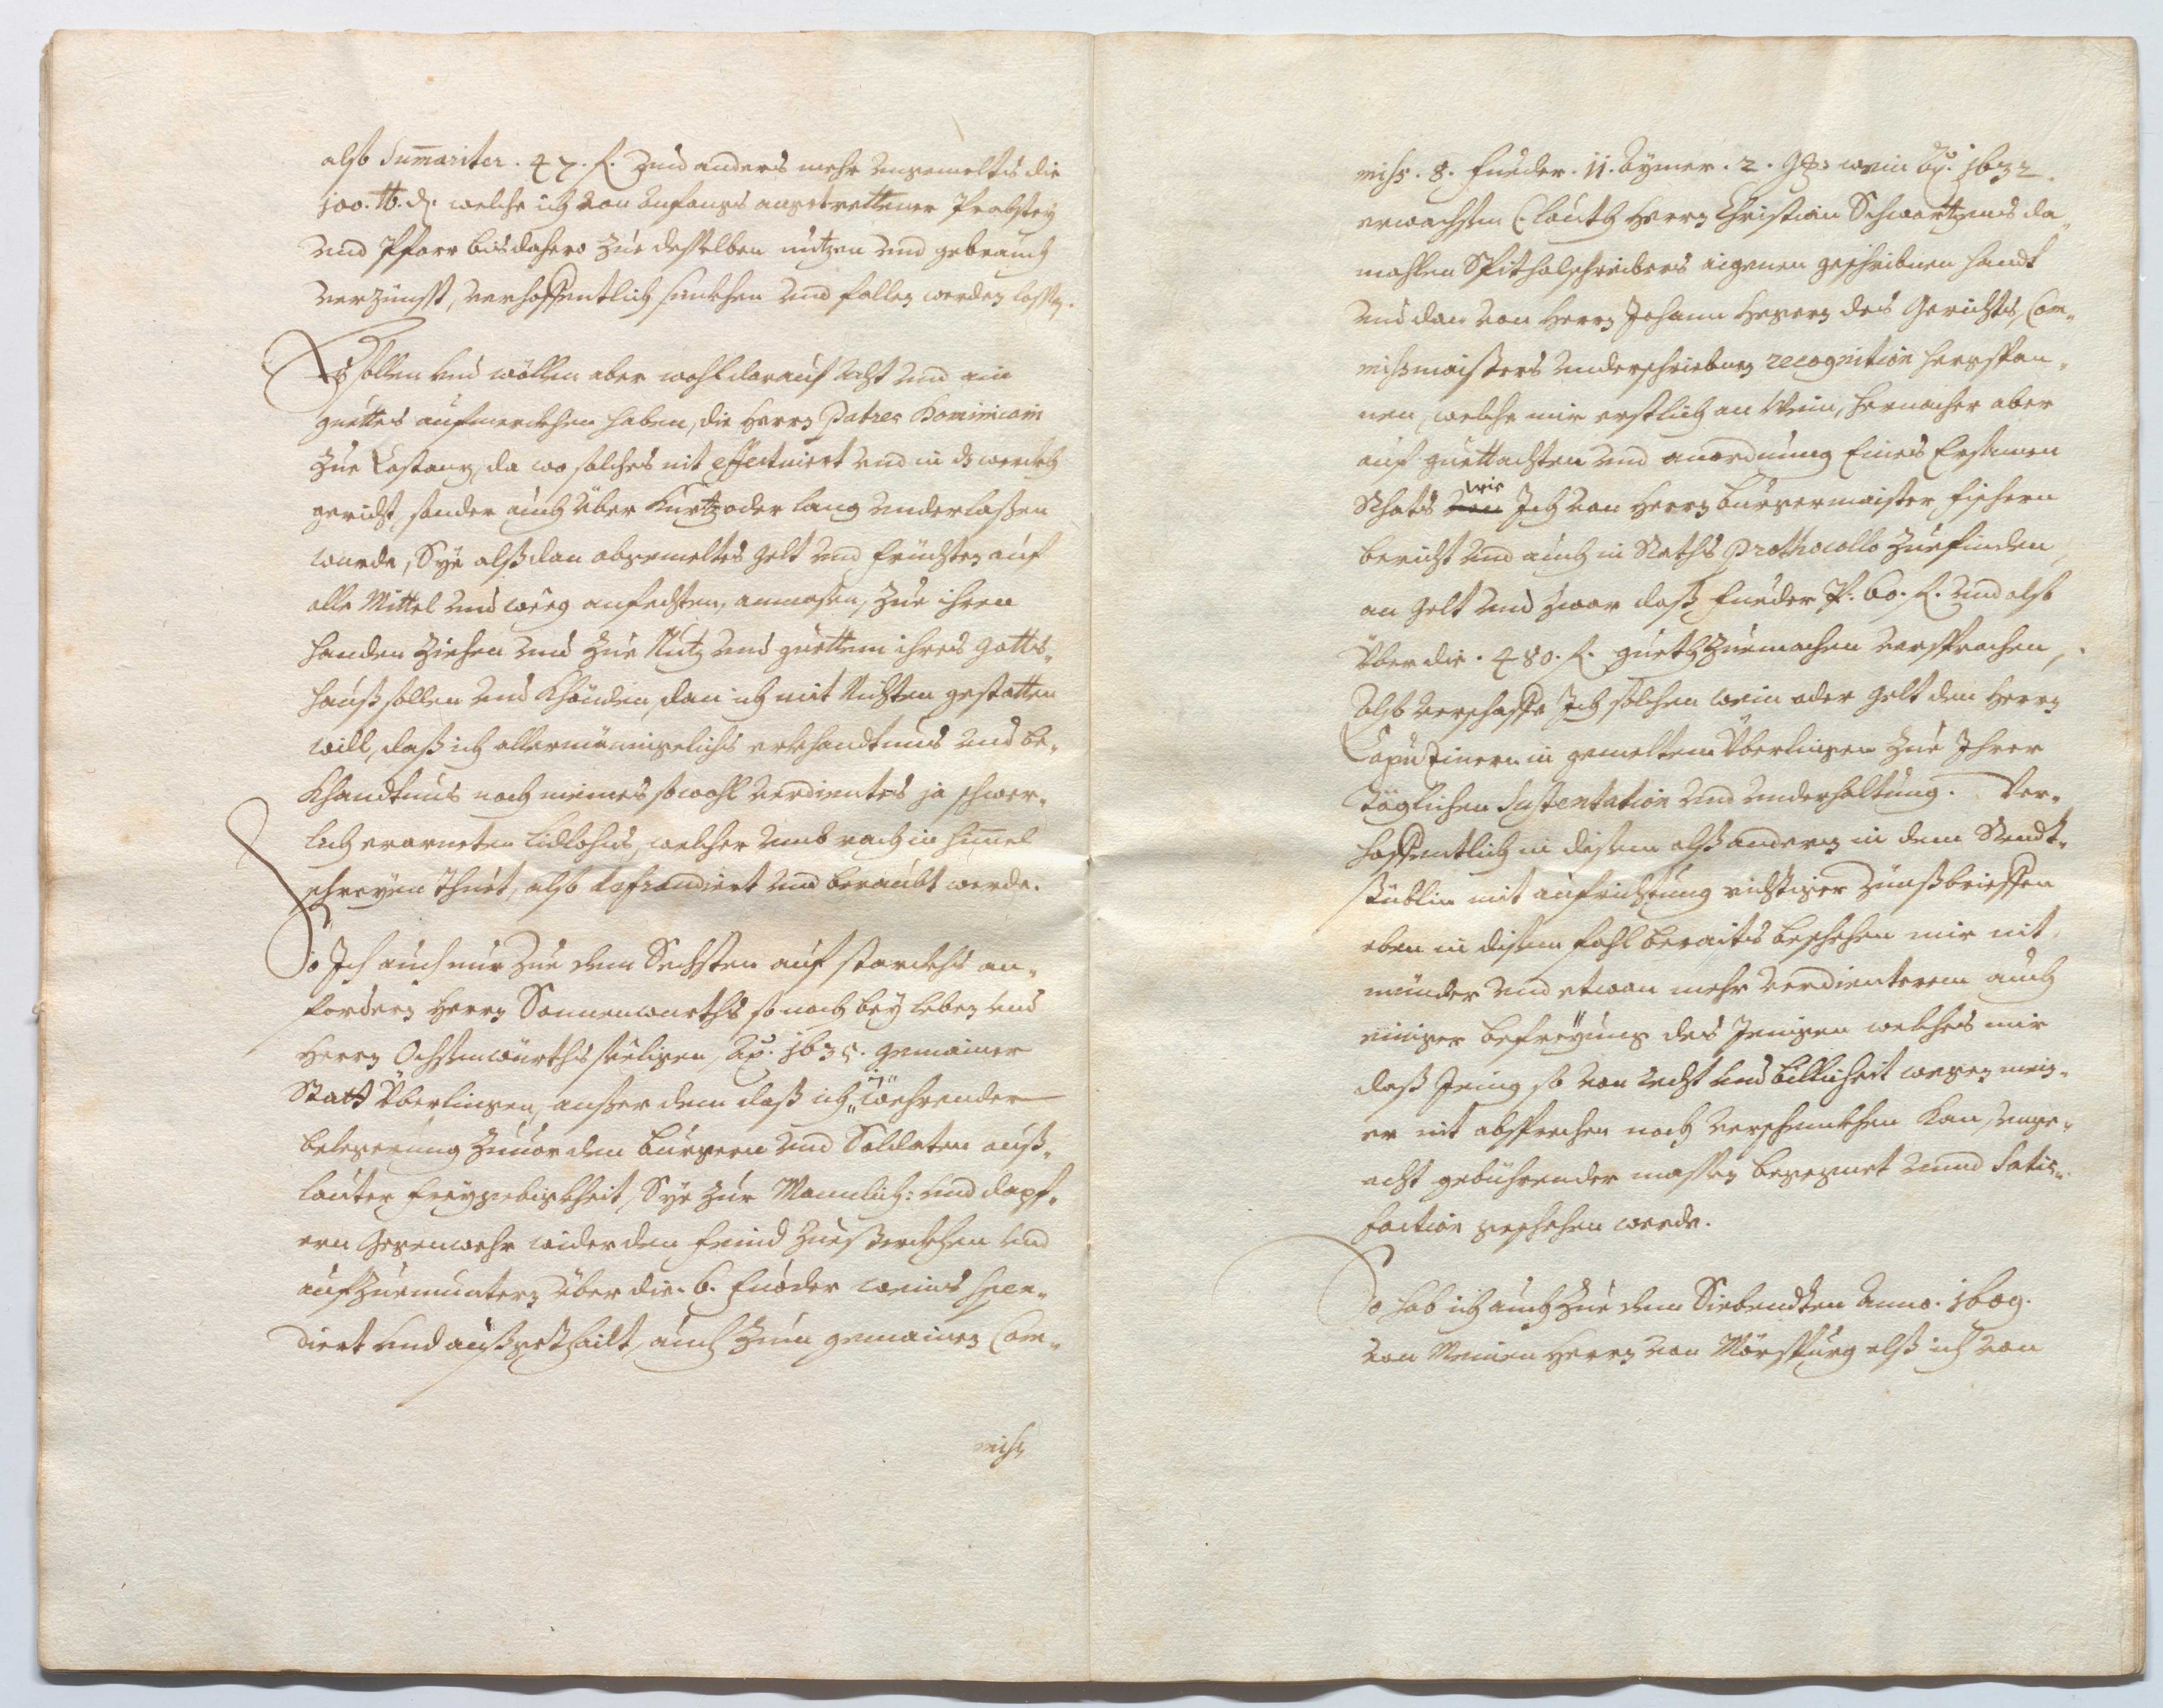 alß Summariter . 47 . fl. Und anders mehr angemeltes die
100. lb. d. welche ich von Anfangs angetrettener Probstey
und Pfarr bis dahero zue desselben nutzen und gebrauch
verzünst, verhoffentlich sinckhen und fallen werden lassen.
Es sollen und wöllen aber wohl darauf Acht und ein
guettes aufmerckhen haben, die Herren Patres Dominicani
zue Costanz, da wo solches nit effectuiert und in ds werckh
gericht, sonder auch über kurtz oder lang underlaßen
wurde, Sye alßdan obgemeltes gelt und früchten auf
alle Mittel und weeg anfechten, anmaßen, zue ihren
handen ziehen und zue Nutz und guettem ihres gotts¬
hauß sollen und khönden, dan ich mit Nichten gestatten
will, daß ich allermänigclichs erkhandtnus und be¬
khandtnus nach meines so wohl verdientes ja schwer¬
lich erarneten Lidlohns, welcher umb rach in himel
schreyen thuet, alß defraudiert und beraubt werde.
So Ich auch nur zue dem Sechsten auf starckhes an¬
fordern Herrn Sonnenwürths so noch bey leben und
Herrn Ochßenwürths seeligen, Ao. 1635. gemainer
Statt Überlingen, ausser dem daß ich in wehrender
belegerung zuuor den burgern und Soldaten auß
lauter freygebigkheit, Sye zur Mannlich: und dapf¬
ern gegenwehr wider den feind zuesterckhen und
aufzuemuntern über die . 6. fueder weins spen¬
diert und außgethailt, auch zum gemainen Com¬
miss
miss . 8. fueder . 11. Aymer . 2 . wein Ao. 1632.
erwachsen (: lauth Herrn Christian Schwartzens da¬
mahlen Spithalschreibers aigenen geschribnen handt
und dan von Herrn Johann Hegern des Gerichts, Com¬
mißmaisters underschriebnen recognition hergspan¬
nen, welche mir erstlich an Wein, hernacher aber
auf guettachten und anordnung Eines Ersamen
Rhats von wie Ich von Herrn Burgermaister
bericht und auch in Raths Prothocollo zuefinden,
an gelt und zwar daß fueder P. 60. fl. und alß
Über die . 480. fl. gueth zuemachen versprochen,
Alß verschaffe Ich solchen wein oder gelt den Herrn
Capuzinern in gemeltem Überlingen zue Ihrer
Täglichen Sustentation und underhaltung. Ver¬
hoffentlich in disem alß andern in dem Rendt¬
stüblin mit aufrichtung richtiger Zünßbrieffen
eben in disem fahl beraits beschehen mir nit
münder und etwan mehr verdienterem auch
einiger befreyung des Jenigen welches mir
daß Jenig so von Recht und billicheit wegen nie¬
er nit absprechen noch verschenckhen kan, unge¬
acht gebührender massen begegnet unnd Satis¬
faction geschehen werde.
So hab ich auch zue dem Siebendten Anno . 1609.
von Meinen Herrn von Mörspurg alß ich von